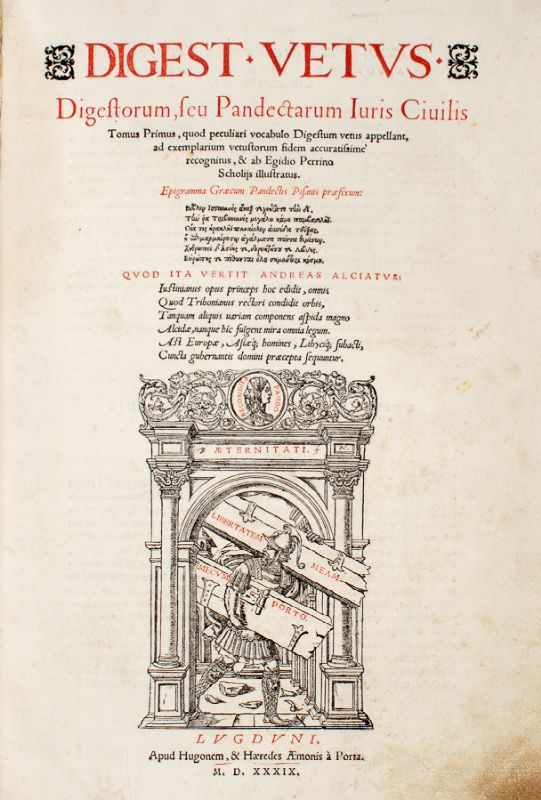 DIGEST · VETVS ·
Digestorum, seu Pandectarum Iuris Ciuilis
Tomus Primus, quod peculiari vocabulo Digestum vetus appellant,
ad exemplarium vetustorum fidem accuratissime
recognitus, & ab Egidio Perrino
Scholijs illustratus.
Epigramma Græcum Pandectis Pisanis præfixum:
QVOD ITA VERTIT ANDREAS ALCIATVS:
Iustinianus opus princeps hoc edidit, omnis
Quod Tribonianus rectori condidit orbis,
Tanquam aliquis uariam componens aspida magno
Alcidæ, nanque hic fulgent mira omnia legum.
Ast Europæ, Asiæq́; homines, Libyciq́; subacti,
Cuncta gubernantis domini præcepta sequuntur.
RECONDITA PANDO
ÆTERNITATI.
LIBERTATEM
MEAM.
MECVM
PORTO.
LVGDVNI.
Apud Hugonem, & Hæredes Æmonis à Porta.
M. D. XXXIX.